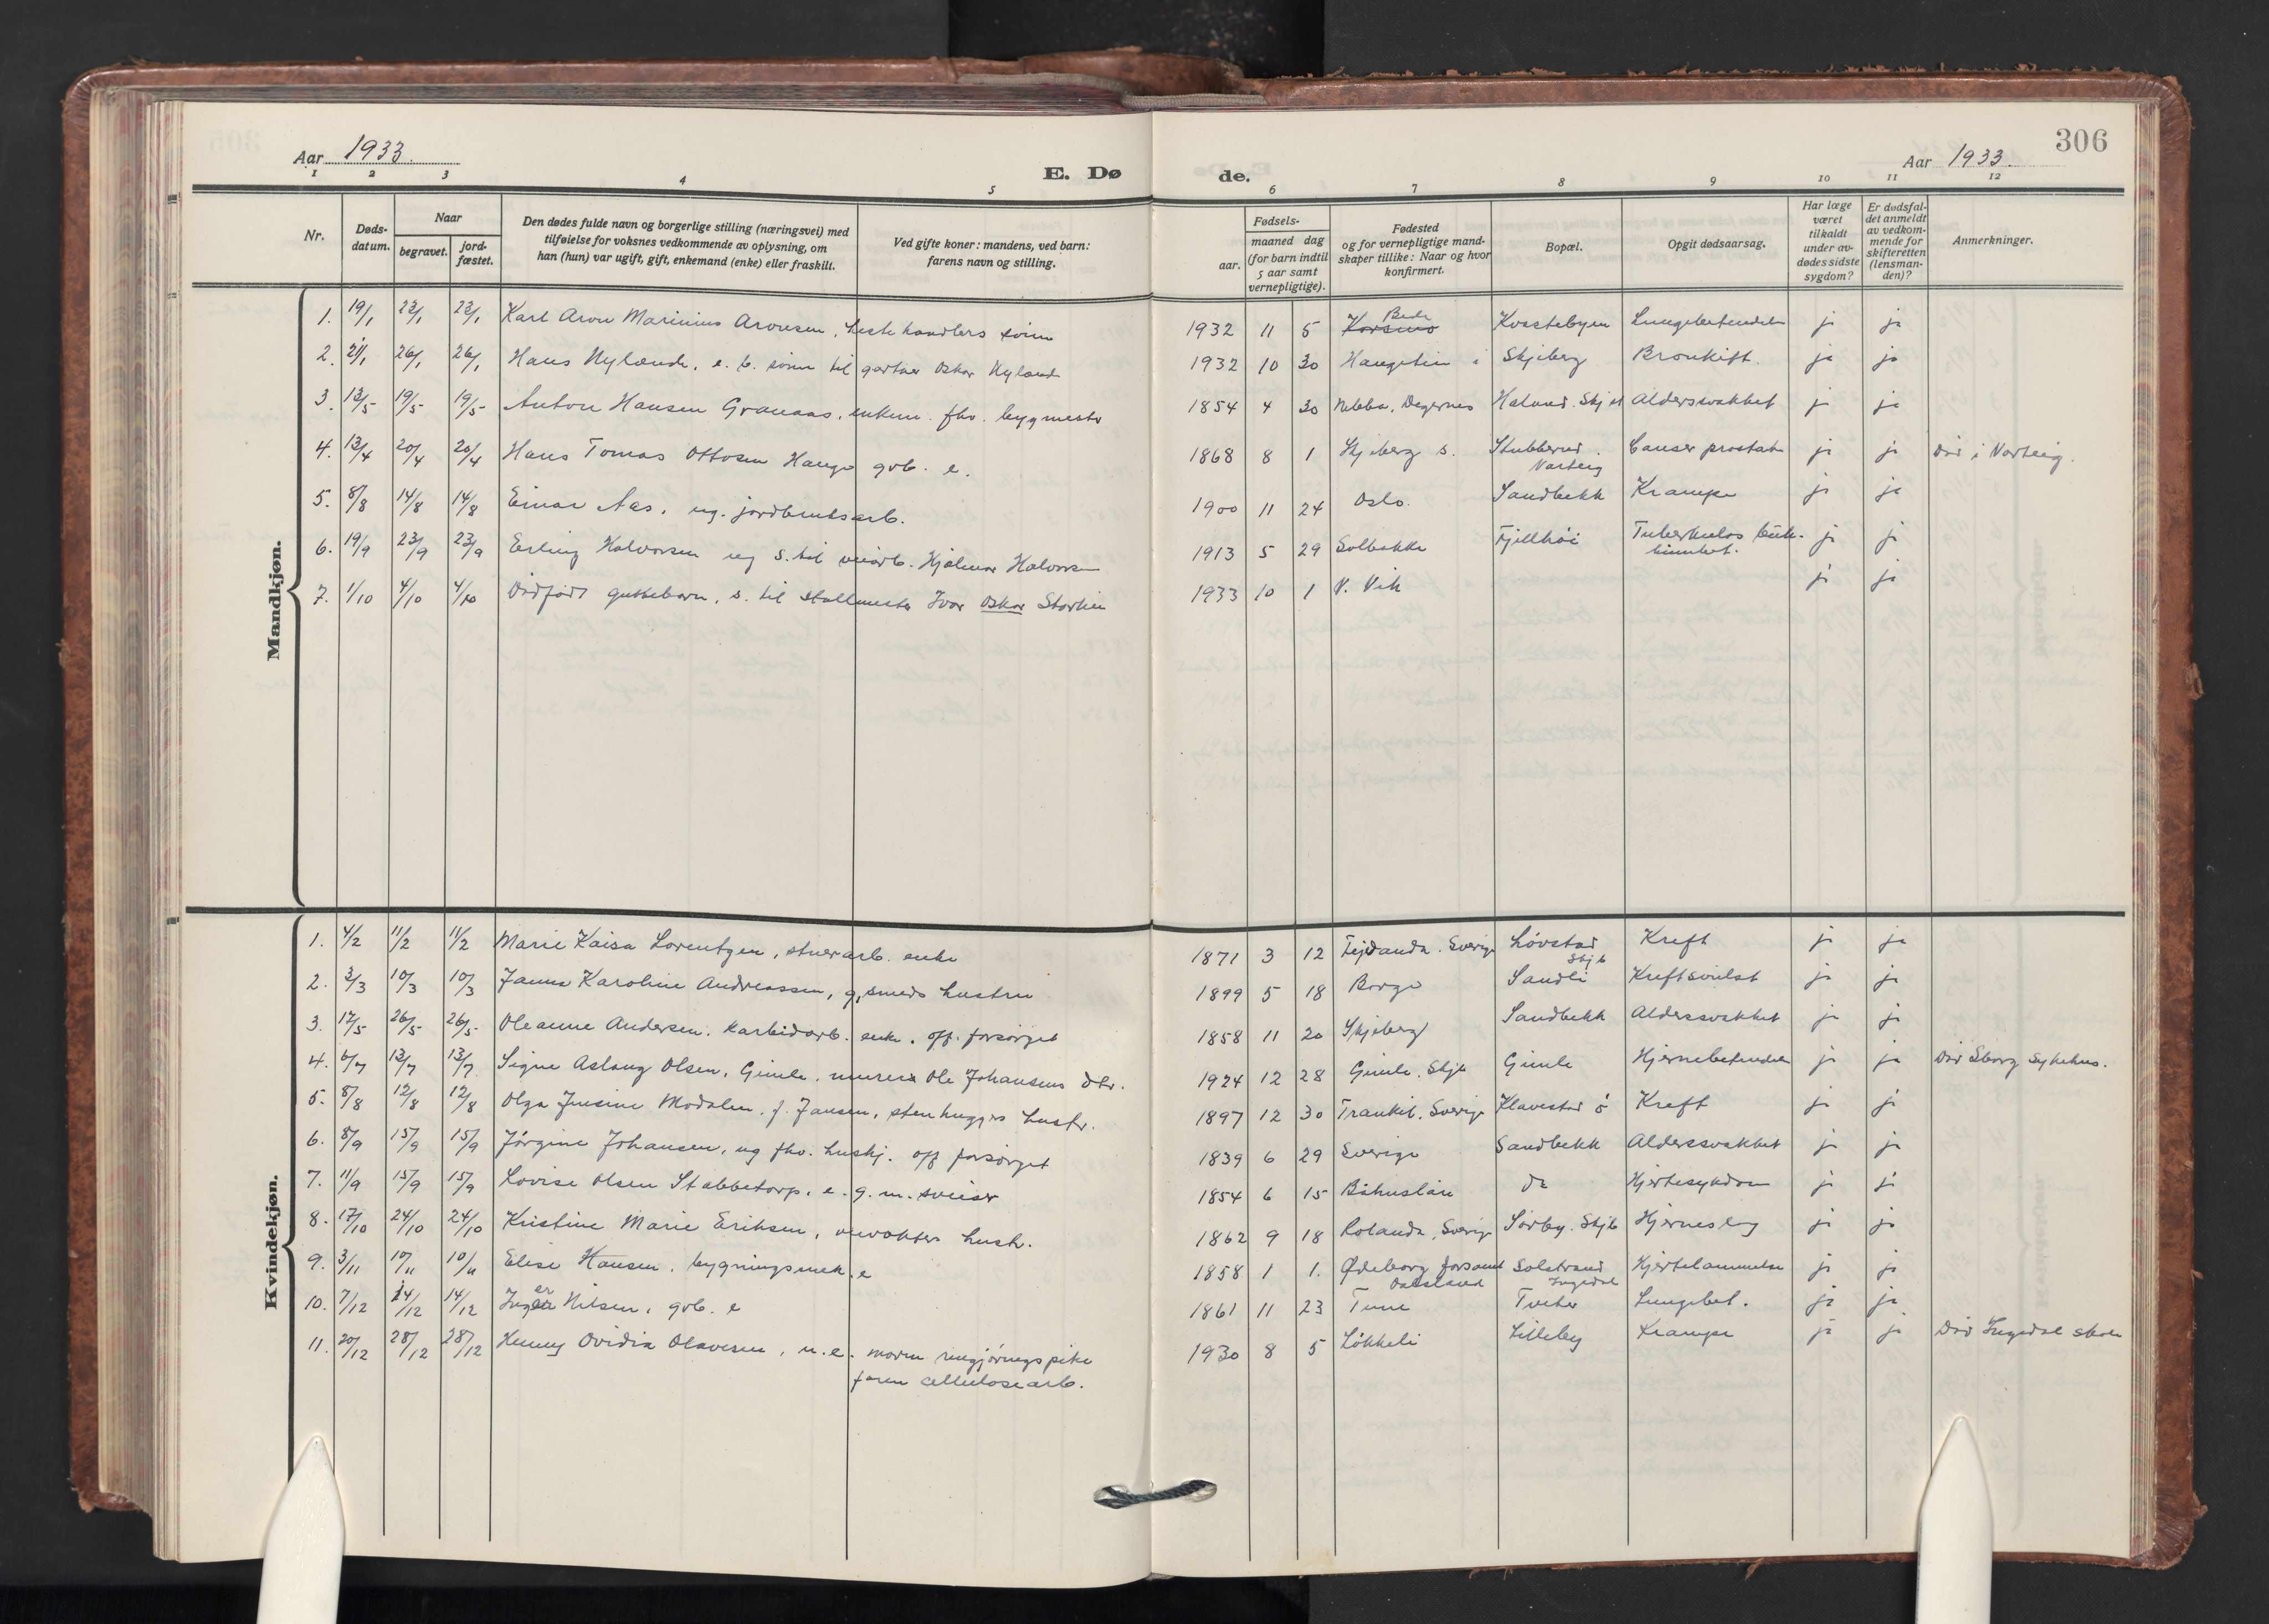 306
Aar 1933.
E. Dø
de.
Aar 1933.
1 2 3 4 5 6 7 8 9 10 11 12
Nr.
Døds-
datum.
Naar
begravet.
jord-
fæstet.
Den dødes fulde navn og borgerlige stilling (næringsvei) med
tilføielse for voksnes vedkommende av oplysning, om
han (hun) var ugift, gift, enkemand (enke) eller fraskilt.
Ved gifte koner: mandens, ved barn:
farens navn og stilling.
Fødsels-
aar.
maaned dag
(for barn indtil
5 aar samt
vernepligtige).
Fødested
og for vernepligtige mand-
skaper tillike: Naar og hvor
konfirmert.
Bopæl.
Opgit dødsaarsag.
Har læge
været
tilkaldt
under av-
dødes sidste
sygdom?
Er dødsfal-
det anmeldt
av vedkom-
mende for
skifteretten
(lensman-
den)?
Anmerkninger.
Mandkjøn.
1. 19/1 23/1 23/1 Karl Aron Marinius Aronsen, hestehandlers sønn 1932 11 5 Korsmo Kvastebyen Lungebetendelse ja ja
2. 21/1 26/1 26/1 Hans Nyland, e. b. sønn til gartner Oskar Nyland 1932 10 30 Haugetun i Skjeberg Bronkitt. ja ja
3. 13/5 19/5 19/5 Anton Hansen Granaas, enkem. fhv. bygmester 1854 4 30 Nebba, Degernes Alderssvakhet ja ja
4. 13/4 20/4 20/4 Hans Tomas Ottosen Hauge gvb. e. 1868 8 1 Skjeberg s. Stubberud. Varteig Cancer prostata ja ja Død i Varteig.
5. 8/8 14/8 14/8 Einar Aas, ug. jordbruksarb. 1900 11 24 Oslo. Sandbekk Krampe ja ja
6. 19/9 23/9 23/9 Erling Halvorsen ug s. til veiarb. Hjalmar Halvorsen 1913 5 29 Solbakke Fjellhøi Tuberkuløs ja ja
7. 1/10 4/10 4/10 Dødfødt guttebarn, s. til stallmester Ivar Oskar Storlien 1933 10 1 V. Vik ja ja
Kvindekjøn.
1. 4/2 11/2 11/2 Marie Kaisa Lorentzen, stuerarb. enke 1871 3 12 Sverige Løvstad Skjb Kreft ja ja
2. 3/3 10/3 10/3 Janna Karoline Andreassen, g, smeds hustru 1899 5 18 Borge Sandli Kreftsvulst ja ja
3. 17/5 26/5 26/5 Oleanne Andersen. Karbidarb. enke. off. forsørget 1858 11 20 Skjeberg Sandbekk Alderssvakhet ja ja
4. 6/7 13/7 13/7 Signe Aslaug Olsen, Gimle. murer Ole Johansens dtr. 1924 12 28 Gimle. Skjb Gimle Hjernebetendelse ja ja Død Sborg Sykehus.
5. 8/8 12/8 12/8 Olga Jensine Modalen. f. Jansen, stenhuggers hustr. 1897 12 30 Trankil. Sverige Klavestad ø Kreft ja ja
6. 8/9 15/9 15/9 Jørgine Johansen, ug fhv. hushj. off forsørget 1839 6 29 Sverige Sandbekk Alderssvakhet ja ja
7. 11/9 15/9 15/9 Lovise Olsen Stabbetorp. e. g. m. sveiser 1854 6 15 Båhuslän do Hjertesykdom ja ja
8. 17/10 24/10 24/10 Kristine Marie Eriksen, veivokters hustr. 1862 9 18 Rolanda, Sverige Sørby. Skjb Hjerneslag ja ja
9. 3/11 10/11 10/11 Elise Hansen. bygningssnek. e 1858 1 1. Ødeborg forsamt Dalsland Solstrand Ingedal Hjertelammelse ja ja
10. 7/12 14/12 14/12 Inger Nilsen, gvb. e 1861 11 23 Tune Tveter Lungebet. ja ja
11. 20/12 28/12 28/12 Henny Ovidia Olavesen, u.e. moren rengjøringspike 1930 8 5 Løkkeli Lilleby Krampe ja ja Død Ingedal skole
faren cellulosearb.